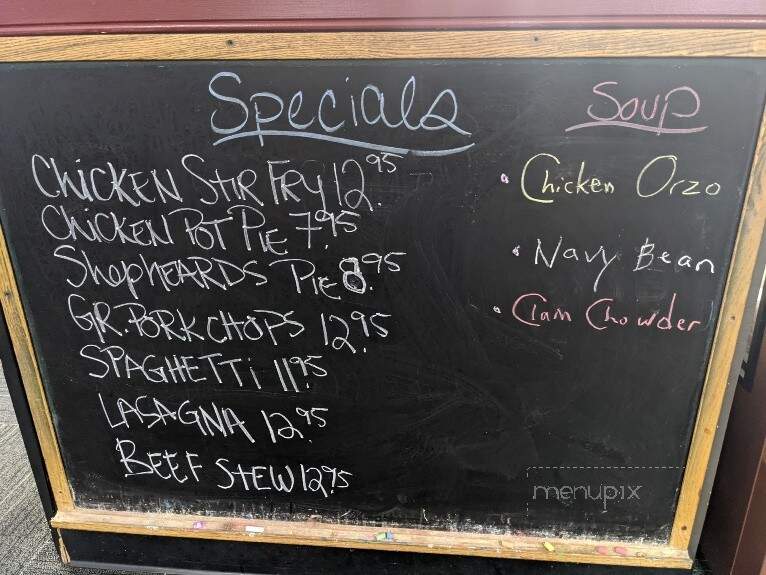 Specials
CHICKEN STIR FRY 12.95
CHICKEN POT PIE 7.95
ShepheARDS PIE 8.95
GR. PORK CHOPS 12.95
SPAGHETTi 11.95
LASAGNA 12.95
BEEF STEW 12.95
Soup
• Chicken Orzo
• Navy Bean
• Clam Chowder
menupix